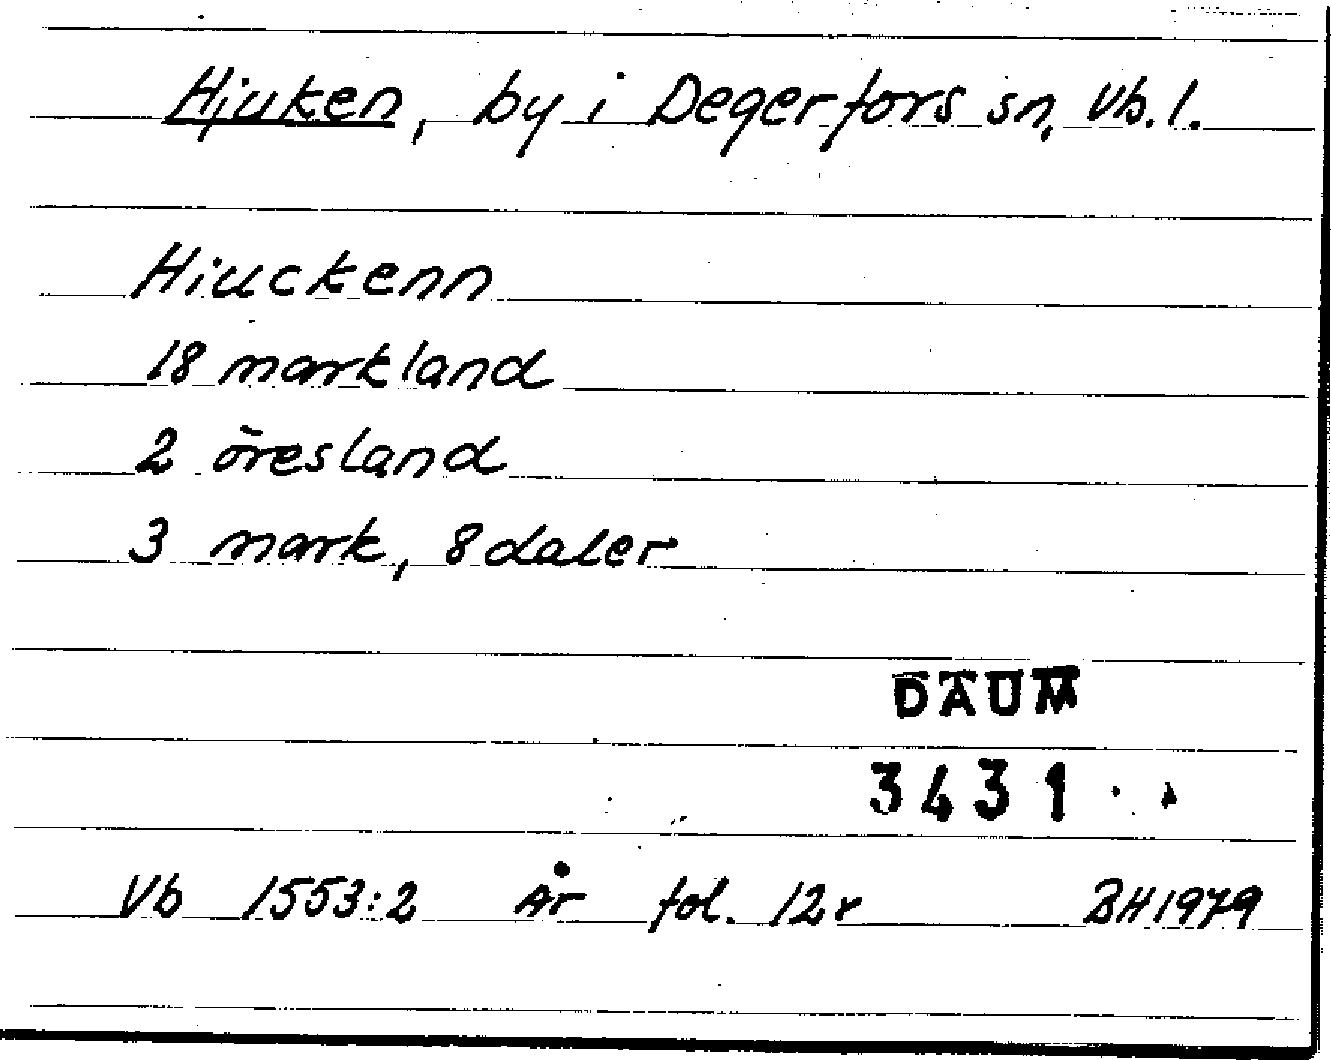 Hjuken, by i Degerfors sn, Vb. l.
Hiuckenn
18 markland
2 öresland
3 mark, 8 daler
DAUM
3431
Vb 1553:2 År fol. 12r BH 1979